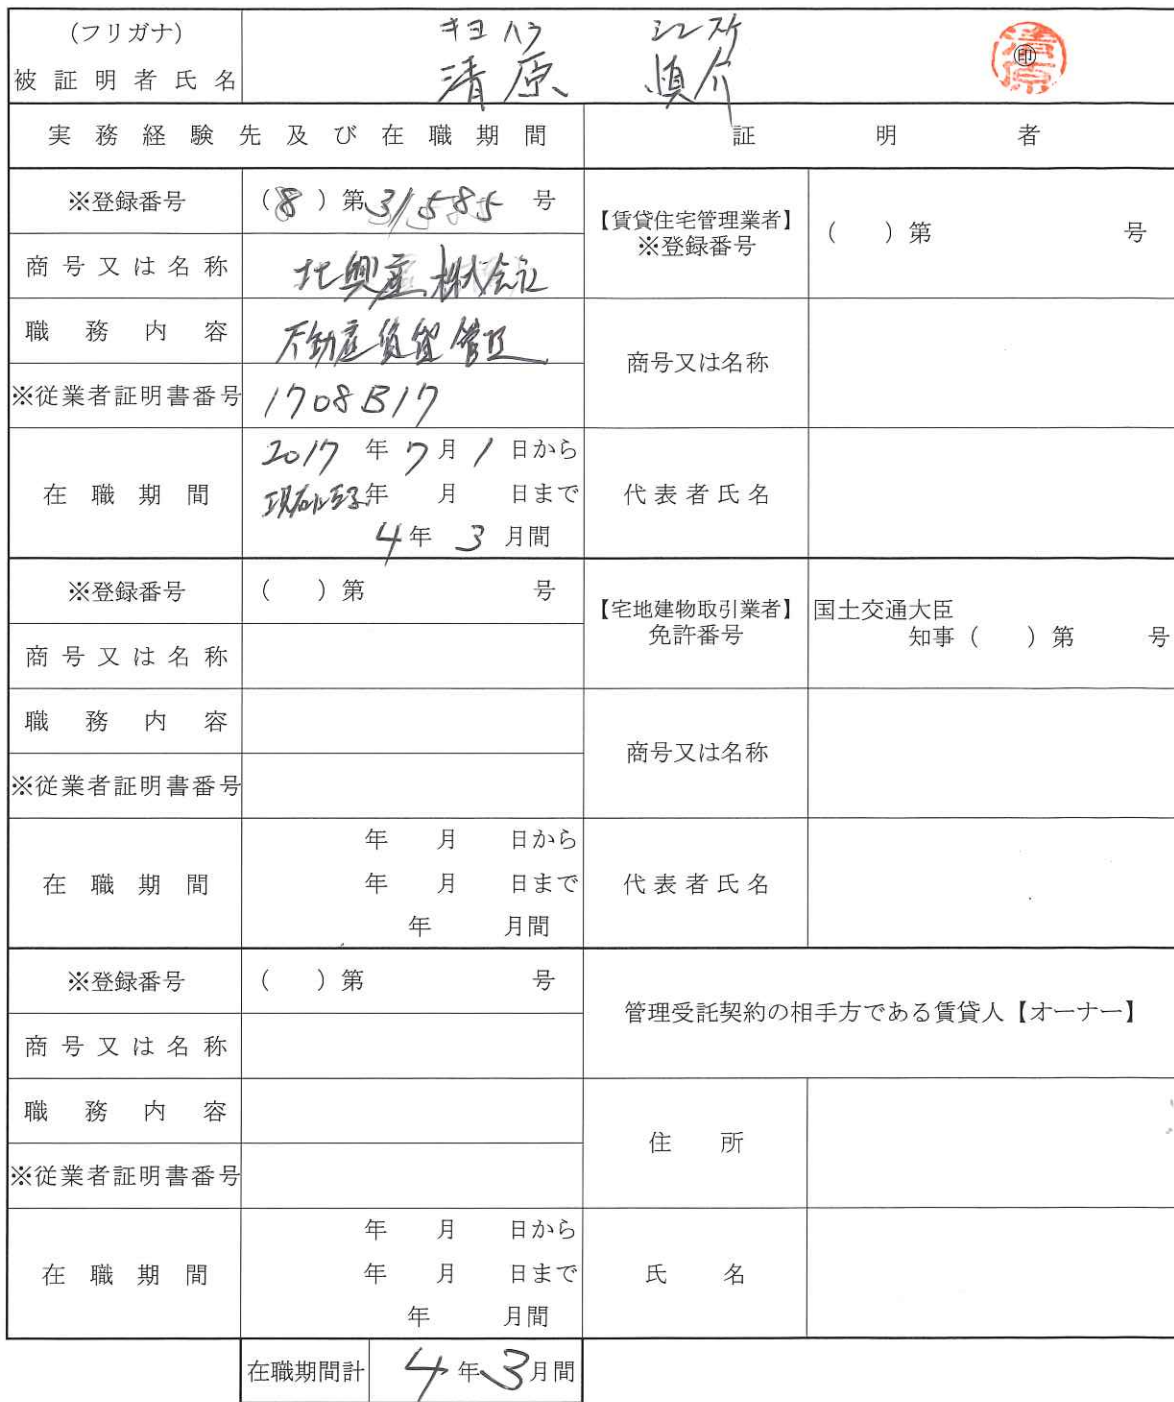 (フリガナ) キヨハラ シンスケ
被証明者氏名 清原 慎介 ㊞ 清原
実務経験先及び在職期間 証明者
※登録番号 (8)第31585号
商号又は名称 北興産株式会社
職務内容 不動産賃貸管理
※従業者証明書番号 1708B17
在職期間 2017年7月1日から
現在に至る年 月 日まで
4年3月間
【賃貸住宅管理業者】
※登録番号 ( )第 号
商号又は名称
代表者氏名
※登録番号 ( )第 号
商号又は名称
職務内容
※従業者証明書番号
在職期間 年 月 日から
年 月 日まで
年 月間
【宅地建物取引業者】 国土交通大臣
免許番号 知事( )第 号
商号又は名称
代表者氏名
※登録番号 ( )第 号
商号又は名称
職務内容
※従業者証明書番号
在職期間 年 月 日から
年 月 日まで
年 月間
管理受託契約の相手方である賃貸人【オーナー】
住所
氏名
在職期間計 4年3月間